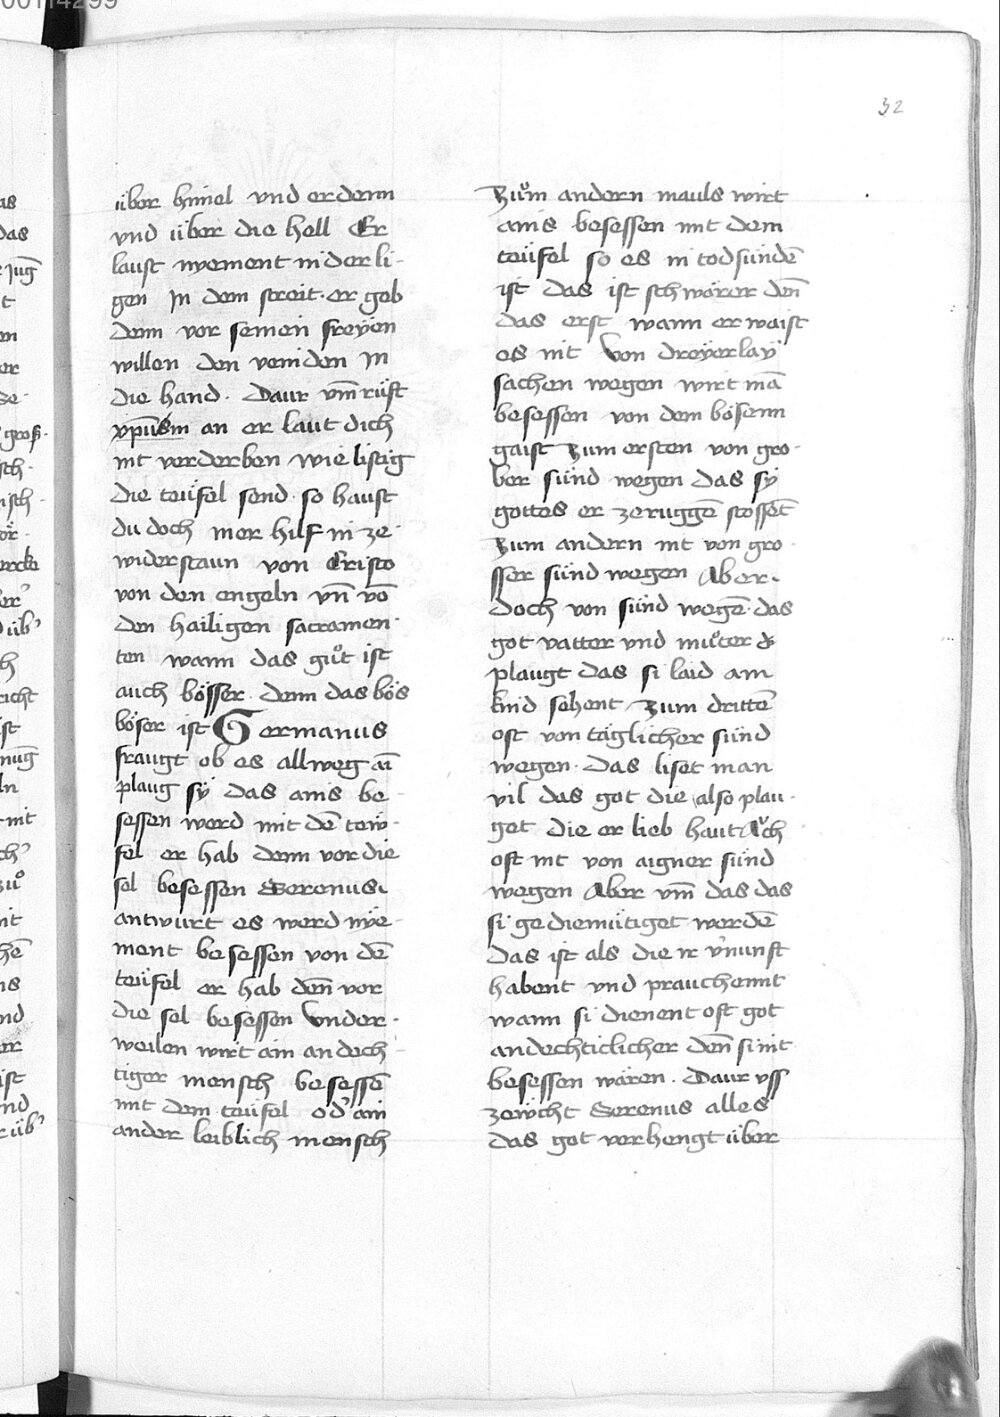 32
über himel vnd erdenn
vnd über die hell Er
laust nyement niderli-
gen jn dem streit. er geb
denn vor seinen freÿen
willen den veinden jn
die hand. Daur vm̄ rüft
xp̄ūm an er laut dich
nit verderben wie listig
die teüfel send. so haust
du doch mer hilf in ze
widerstaun von Cristo
von den engeln vn̄ vō
den hailigen sacramen-
ten wann das guͦt ist
auch bösser. denn das bös
böser ist Germanus
fraugt ob es allweg ain
plaug sÿ das ains be-
sessen werd mit dē tew-
fel er hab denn vor die
sel besessen Serenus.
antwurt es werd nye-
ment besessen von dē
teüfel er hab den̄ vor
die sel besessen Vnder-
weilen wirt ain andech-
tiger mensch besessē
mit dem teüfel od' ain
ander leiblich mensch
Zuͦm andern mauls wirt
ains besessen mit dem
teüfel so es in todsündē
ist das ist schwörer den̄
das erst wann er waist
es nit Von dreÿerlaÿ
sachen wegen wirt mā
besessen von dem bösenn
gaist Zum ersten von gro-
ber sünd wegen das sÿ
gottes er zeruggē stossēt
Zum andern nit von gro
sser sünd wegen Aber.
doch von sünd wegē. das
got vatter vnd muͦter
plaugt das si laid am
kind sehent Zum drittē
oft von täglicher sünd
wegen. Das liset man
vil das got die also plau-
get die er lieb haut Auch
oft nit von aigner sünd
wegen Aber vm̄ das das
si gediemütiget werdē
Das ist als die ir v'nunft
habent vnd prauchennt
wann si dienent oft got
andechticlicher den̄ si nit
besessen wären. Daur vss
zewcht Serenus alles
das got verhengt über